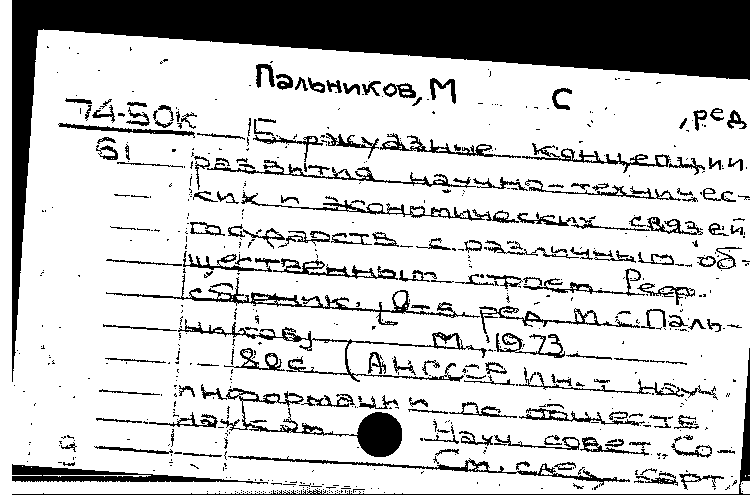 Пальников, М С , ред
74-50к
61
Буржуазные концепции
развития научно-техничес-
ких и экономических связей
государств с различным об-
щественным строем. Реф.
сборник. [Отв. ред. М.С.Паль-
ников]
М., 1973.
80с. (АН СССР. Ин-т науч.
информации по обществ.
наукам
Науч. совет „Со-
См. след. карт.
9